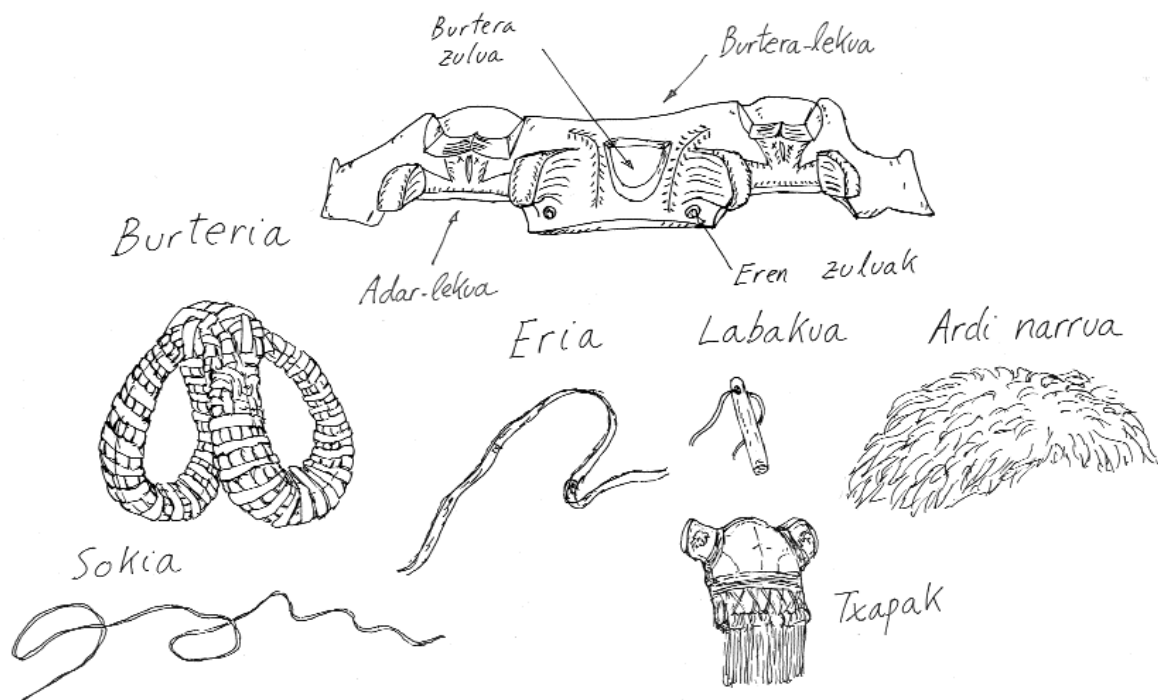 Burtera
zulua
Burtera-lekua
Burteria
Adar-lekua
Eren zuluak
Eria
Labakua
Ardi narrua
Sokia
Txapak